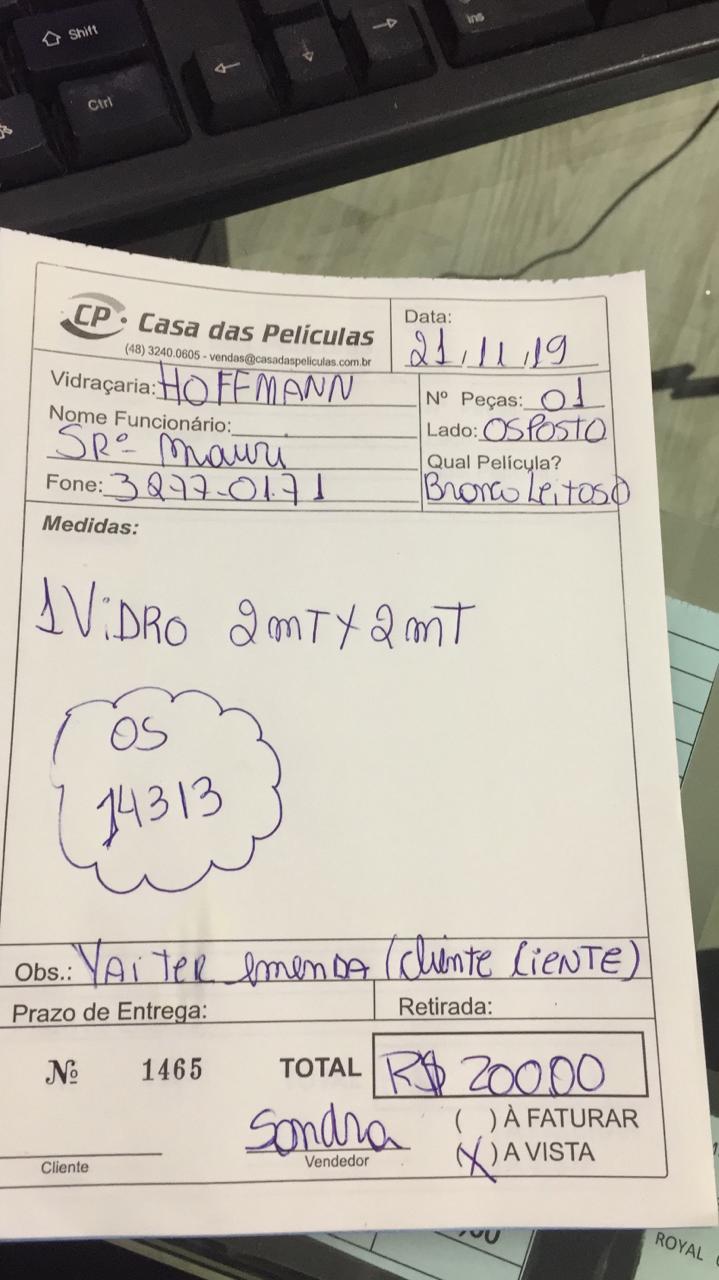 Shift
Ctrl
Ins
CP. Casa das Películas
(48) 3240.0605 - vendas@casadaspeliculas.com.br
Data:
21/11/19
Vidraçaria: HOFFMANN
Nome Funcionário:
SRº Mauri
Fone: 3277-0171
Nº Peças: 01
Lado: OSPOSTO
Qual Película?
Branco Leitoso
Medidas:
1 ViDRO 2mT X 2mT
OS
14313
Obs.: VAi TER emenDA (cliente CiENTE)
Prazo de Entrega:
Retirada:
Nº 1465
TOTAL R$ 200,00
Sandra
( ) À FATURAR
(X) A VISTA
Cliente
Vendedor
ROYAL